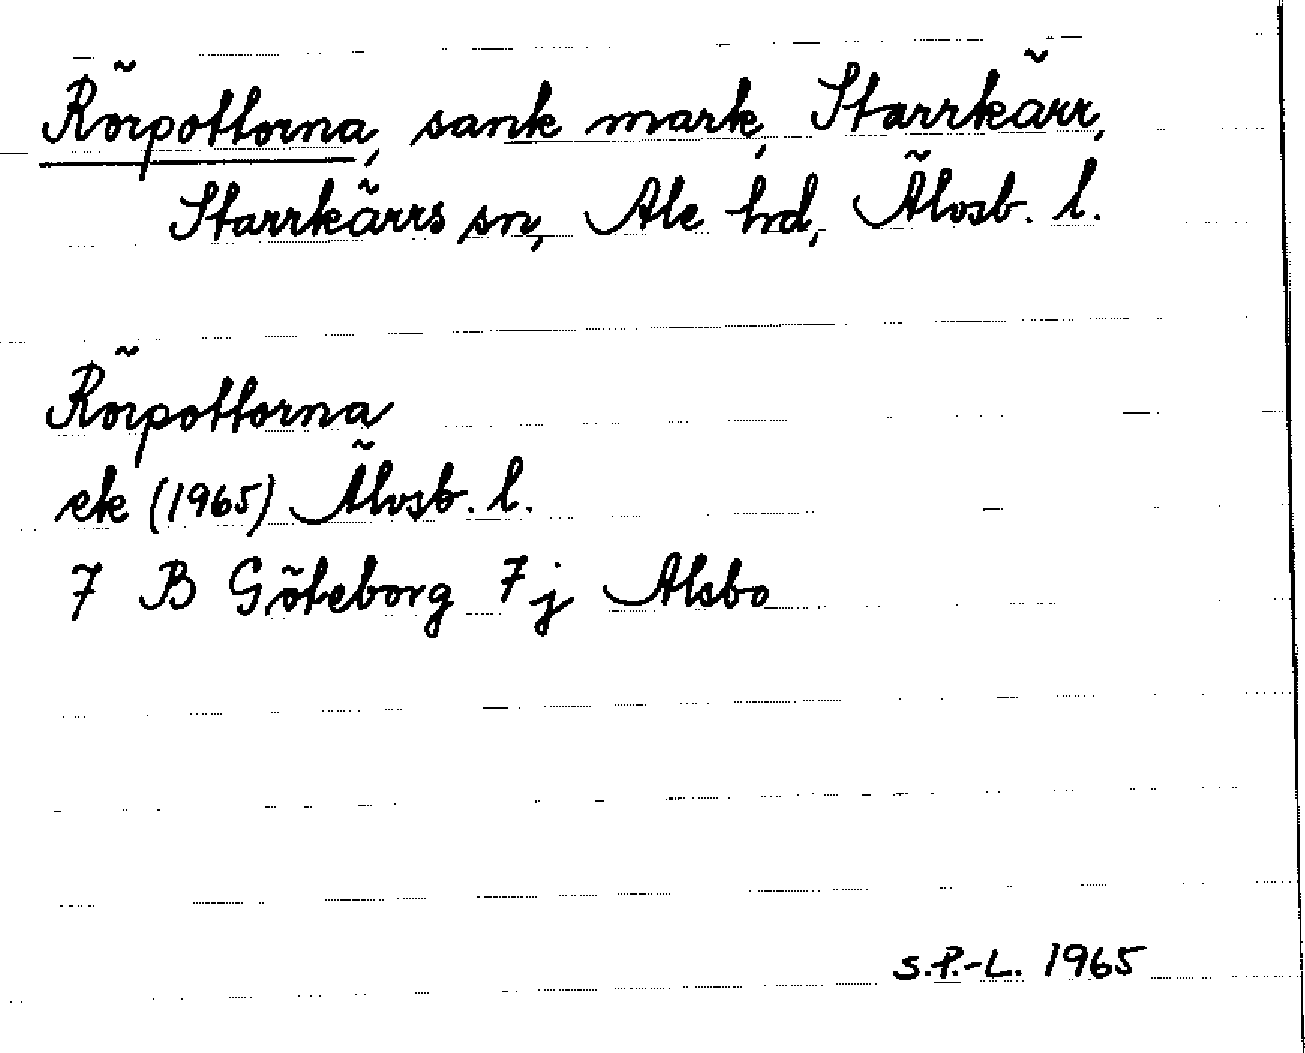 Rörpottorna, sank mark, Starrkärr,
Starrkärrs sn, Ale hd, Älvsb. l.
Rörpottorna
ek (1965) Älvsb. l.
7 B Göteborg 7j Alsbo
S.P.-L. 1965